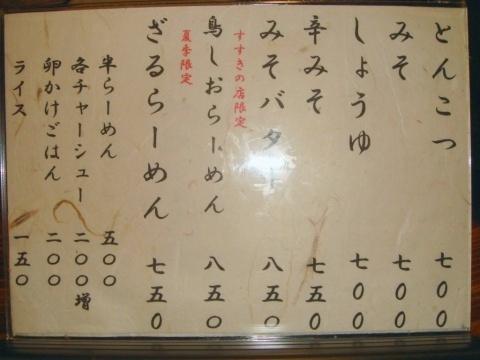 とんこつ 七〇〇
みそ 七〇〇
しょうゆ 七〇〇
辛みそ 七五〇
みそバター 八五〇
すすきの店限定
鳥しおらーめん 八五〇
夏季限定
ざるらーめん 七五〇
半らーめん 五〇〇
各チャーシュー 二〇〇増
卵かけごはん 二〇〇
ライス 一五〇